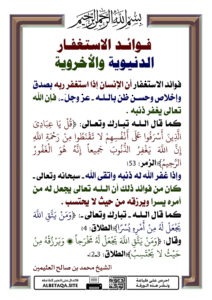 بسم الله الرحمن الرحيم
فوائد الاستغفار
الدنيوية والأخروية
فوائد الاستغفار أن الإنسان إذا استغفر ربه بصدق
وإخلاص وحسن ظن بالله ـ عز وجل ـ، فإن الله
تعالى يغفر ذنبه.
كما قال الله تبارك وتعالى: ﴿قُلْ يَا عِبَادِيَ
الَّذِينَ أَسْرَفُوا عَلَى أَنْفُسِهِمْ لَا تَقْنَطُوا مِنْ رَحْمَةِ اللَّهِ
إِنَّ اللَّهَ يَغْفِرُ الذُّنُوبَ جَمِيعًا إِنَّهُ هُوَ الْغَفُورُ
الرَّحِيمُ﴾(الزمر: 53)
وإذا غفر الله له ذنبه واتقى الله ـ سبحانه وتعالى ـ
كان من فوائد ذلك أن الله تعالى يجعل له من
أمره يسرا ويرزقه من حيث لا يحتسب.
كما قال الله ـ تبارك وتعالى ـ: ﴿وَمَن يَتَّقِ اللَّهَ
يَجْعَل لَّهُ مِنْ أَمْرِهِ يُسْرًا﴾(الطلاق: 4)
وقال: ﴿وَمَن يَتَّقِ اللَّهَ يَجْعَل لَّهُ مَخْرَجًا ۞ وَيَرْزُقْهُ مِنْ
حَيْثُ لَا يَحْتَسِبُ﴾(الطلاق: 2ـ3)
الشيخ محمد بن صالح العثيمين
ALBETAQA.SITE